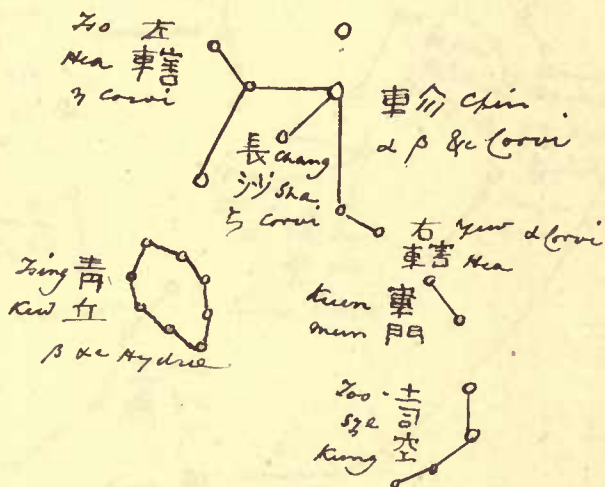 Tso 左
Hea 車害
η Corvi
車㐱 Chin
α β &c Corvi
長 Chang
沙 Sha
ζ Corvi
右 Yew α Corvi
轄 Hea
Tsing 青
Kew 丘
β &c Hydræ
Keun 軍
mun 門
Too 土
Sze 司
Kung 空